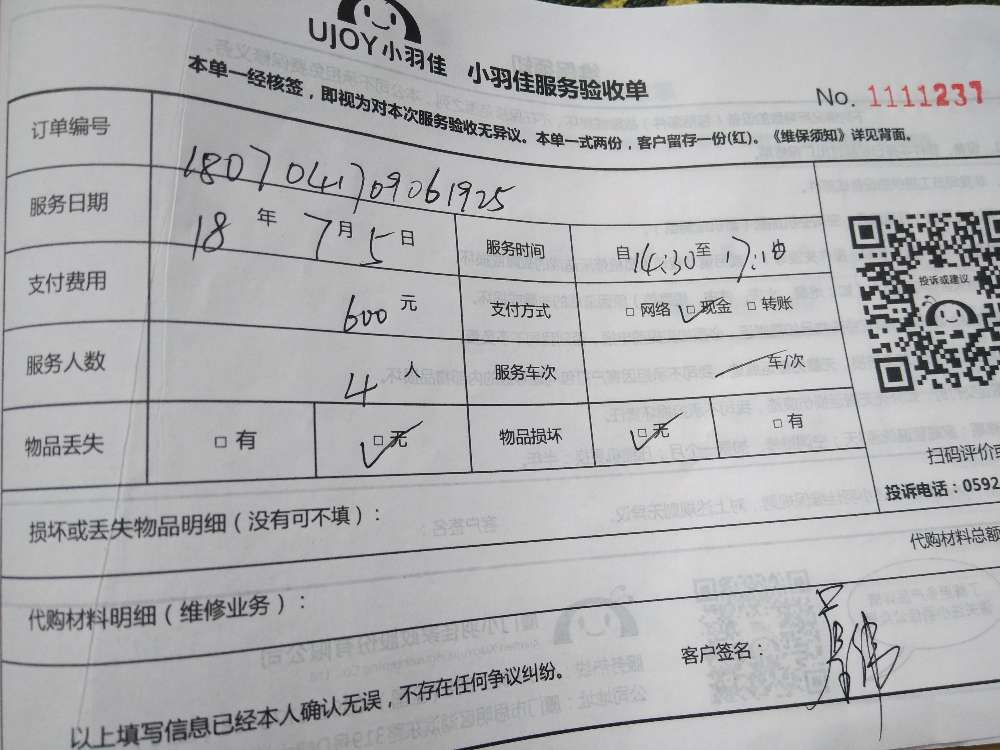 UJOY小羽佳 小羽佳服务验收单
No. 1111237
本单一经核签，即视为对本次服务验收无异议。本单一式两份，客户留存一份(红)。《维保须知》详见背面。
订单编号 1807041709061925
服务日期 18年7月5日 服务时间 自14:30至7:10
支付费用 600元 支付方式 □网络 □现金 □转账
服务人数 4人 服务车次 车/次
物品丢失 □有 □无 物品损坏 □无 □有
投诉或建议
扫码评价或
投诉电话：0592
损坏或丢失物品明细（没有可不填）：
代购材料总额
代购材料明细（维修业务）：
客户签名：
以上填写信息已经本人确认无误，不存在任何争议纠纷。